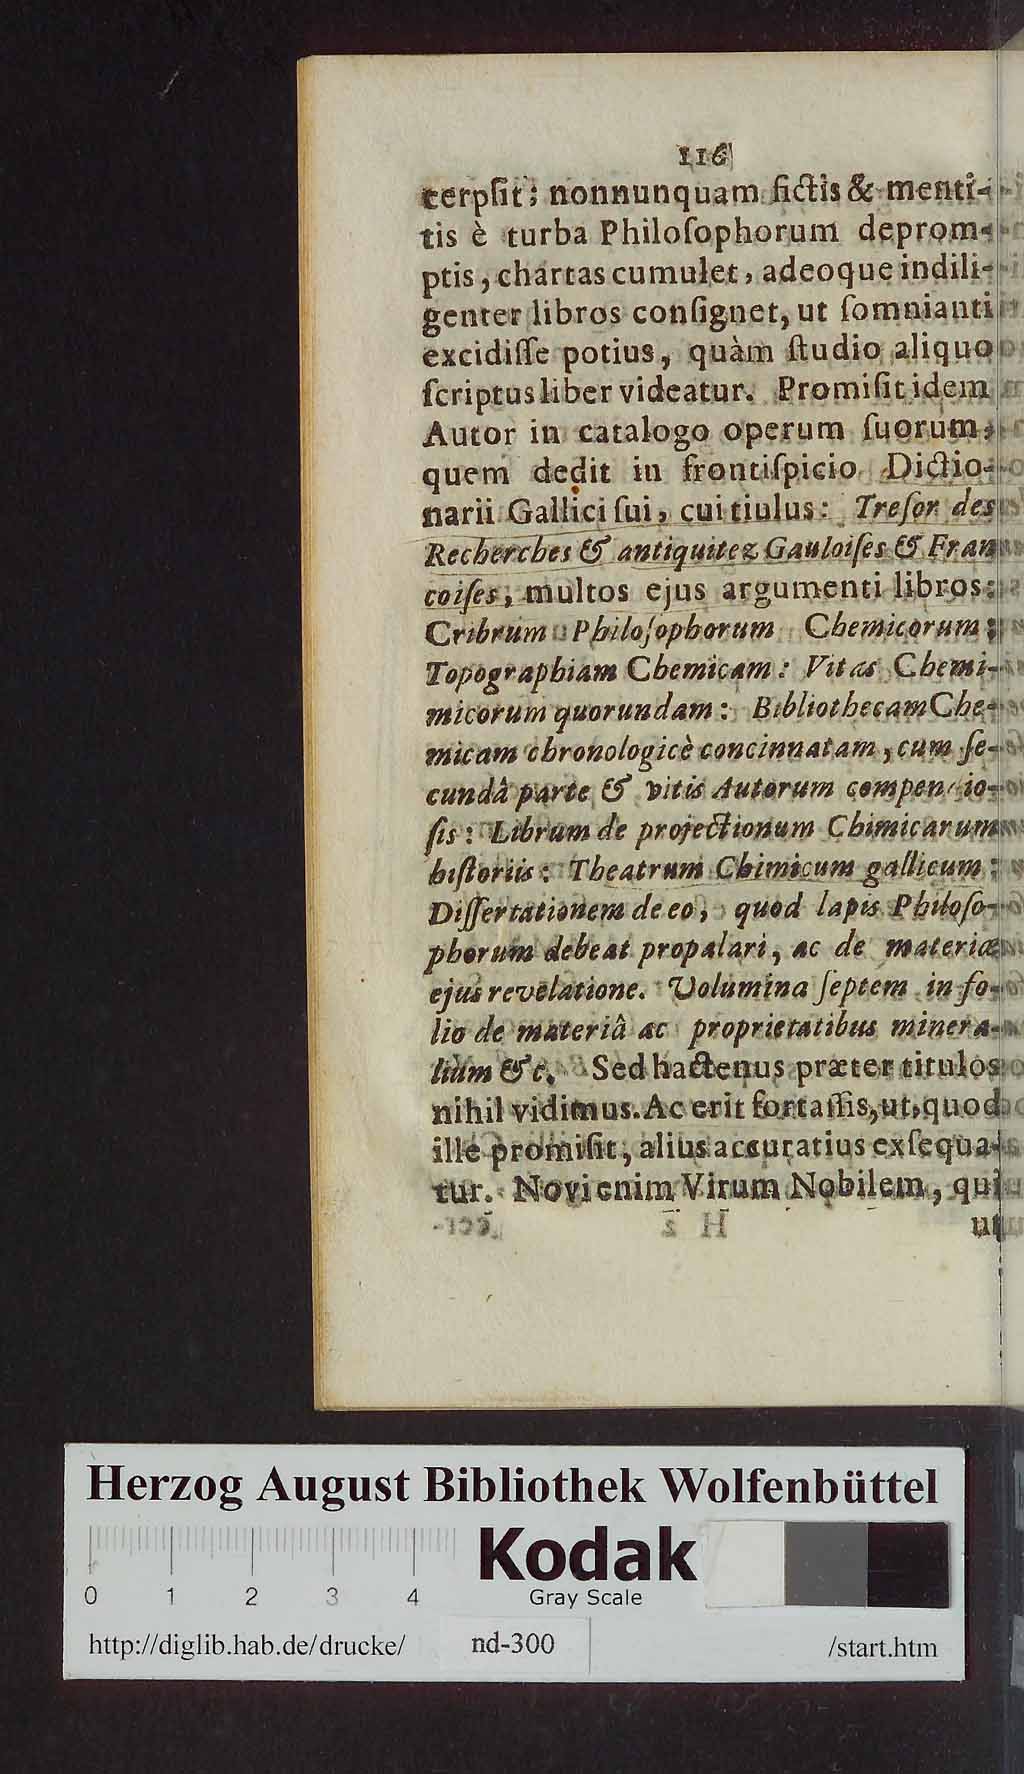 116
terpſit; nonnunquam fictis & menti-
tis è turba Philoſophorum deprom-
ptis, chartas cumulet, adeoque indili-
genter libros conſignet, ut ſomnianti
excidiſſe potius, quàm ſtudio aliquo
ſcriptus liber videatur. Promiſit idem
Autor in catalogo operum ſuorum,
quem dedit in frontiſpicio Dictio-
narii Gallici ſui, cui tiulus: Treſor des
Recherches & antiquitez Gauloiſes & Fran
coiſes, multos ejus argumenti libros:
Cribrum Philoſophorum Chemicorum:
Topographiam Chemicam: Vitas Chemi-
micorum quorundam: Bibliothecam Che-
micam chronologicè concinnatam, cum ſe-
cundâ parte & vitis Autorum compendio-
ſis: Librum de projectionum Chimicarum
hiſtoriis: Theatrum Chimicum gallicum:
Diſſertationem de eo, quod lapis Philoſo-
phorum debeat propalari, ac de materiæ
ejus revelatione. Volumina ſeptem in fo-
lio de materiâ ac proprietatibus minera-
lium &c. Sed hactenus præter titulos
nihil vidimus. Ac erit fortaſſis, ut, quod
ille promiſit, alius accuratius exſequa-
tur. Novi enim Virum Nobilem, qui
ut
Herzog August Bibliothek Wolfenbüttel
Kodak
Gray Scale
0 1 2 3 4
http://diglib.hab.de/drucke/ nd-300 /start.htm